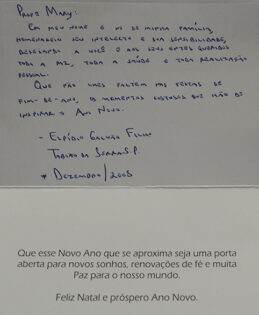 Profª Mary:
Em meu nome e no de minha família,
homenageio seu intelecto e sua sensibilidade,
desejando a você e aos seus entes queridos
toda a paz, toda a saúde e toda realização
pessoal.
Que não lhes faltem nas festas de
fim-de-ano, os momentos gostosos que hão de
inspirar o Ano Novo.
- Elpídio Galvão Filho
da Serra-S.P.
* Dezembro/2005
Que esse Novo Ano que se aproxima seja uma porta
aberta para novos sonhos, renovações de fé e muita
Paz para o nosso mundo.
Feliz Natal e próspero Ano Novo.